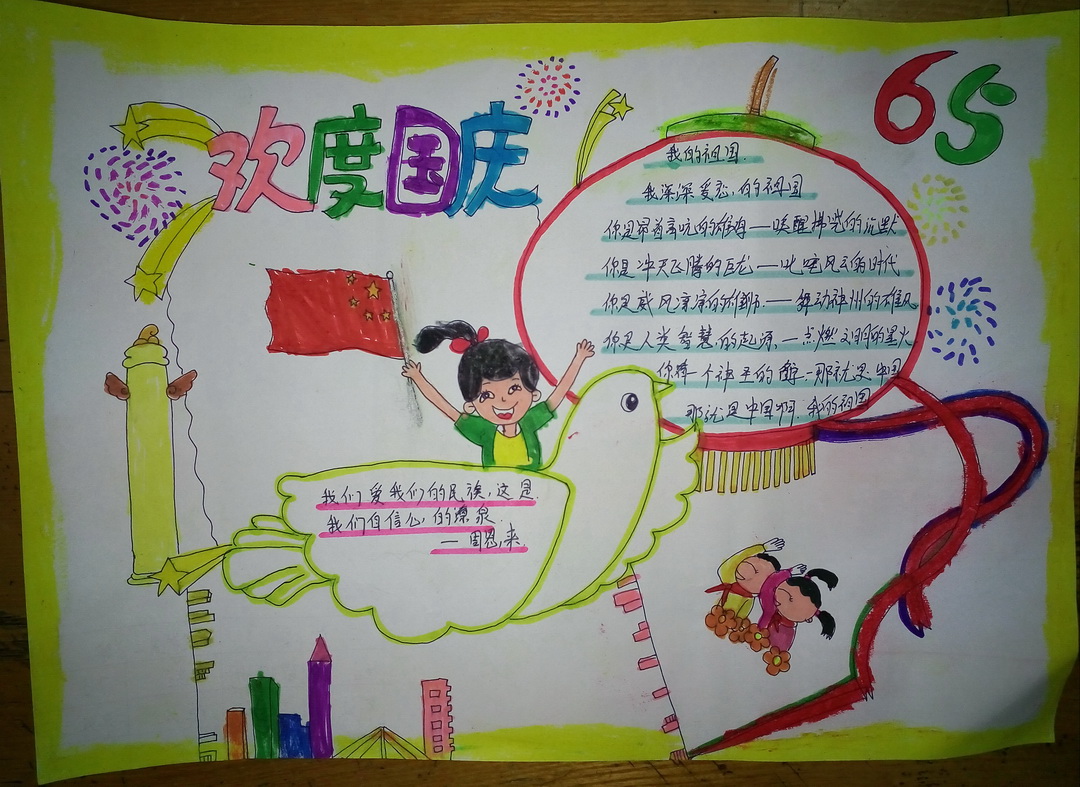 欢度国庆
65
我的祖国.
我深深爱恋,的的祖国
你是昂首高吭的雄鸡——唤醒拂晓的沉默
你是冲天飞腾的巨龙——叱咤风云的时代
你是威风凛凛的雄狮——舞动神州的雄风
你是人类智慧的起源.——点燃文明的星火
你有一个神圣的——那就是中国
那就是中国啊.我的祖国
我们爱我们的民族,这是
我们自信心,的源泉.
—周恩,来.